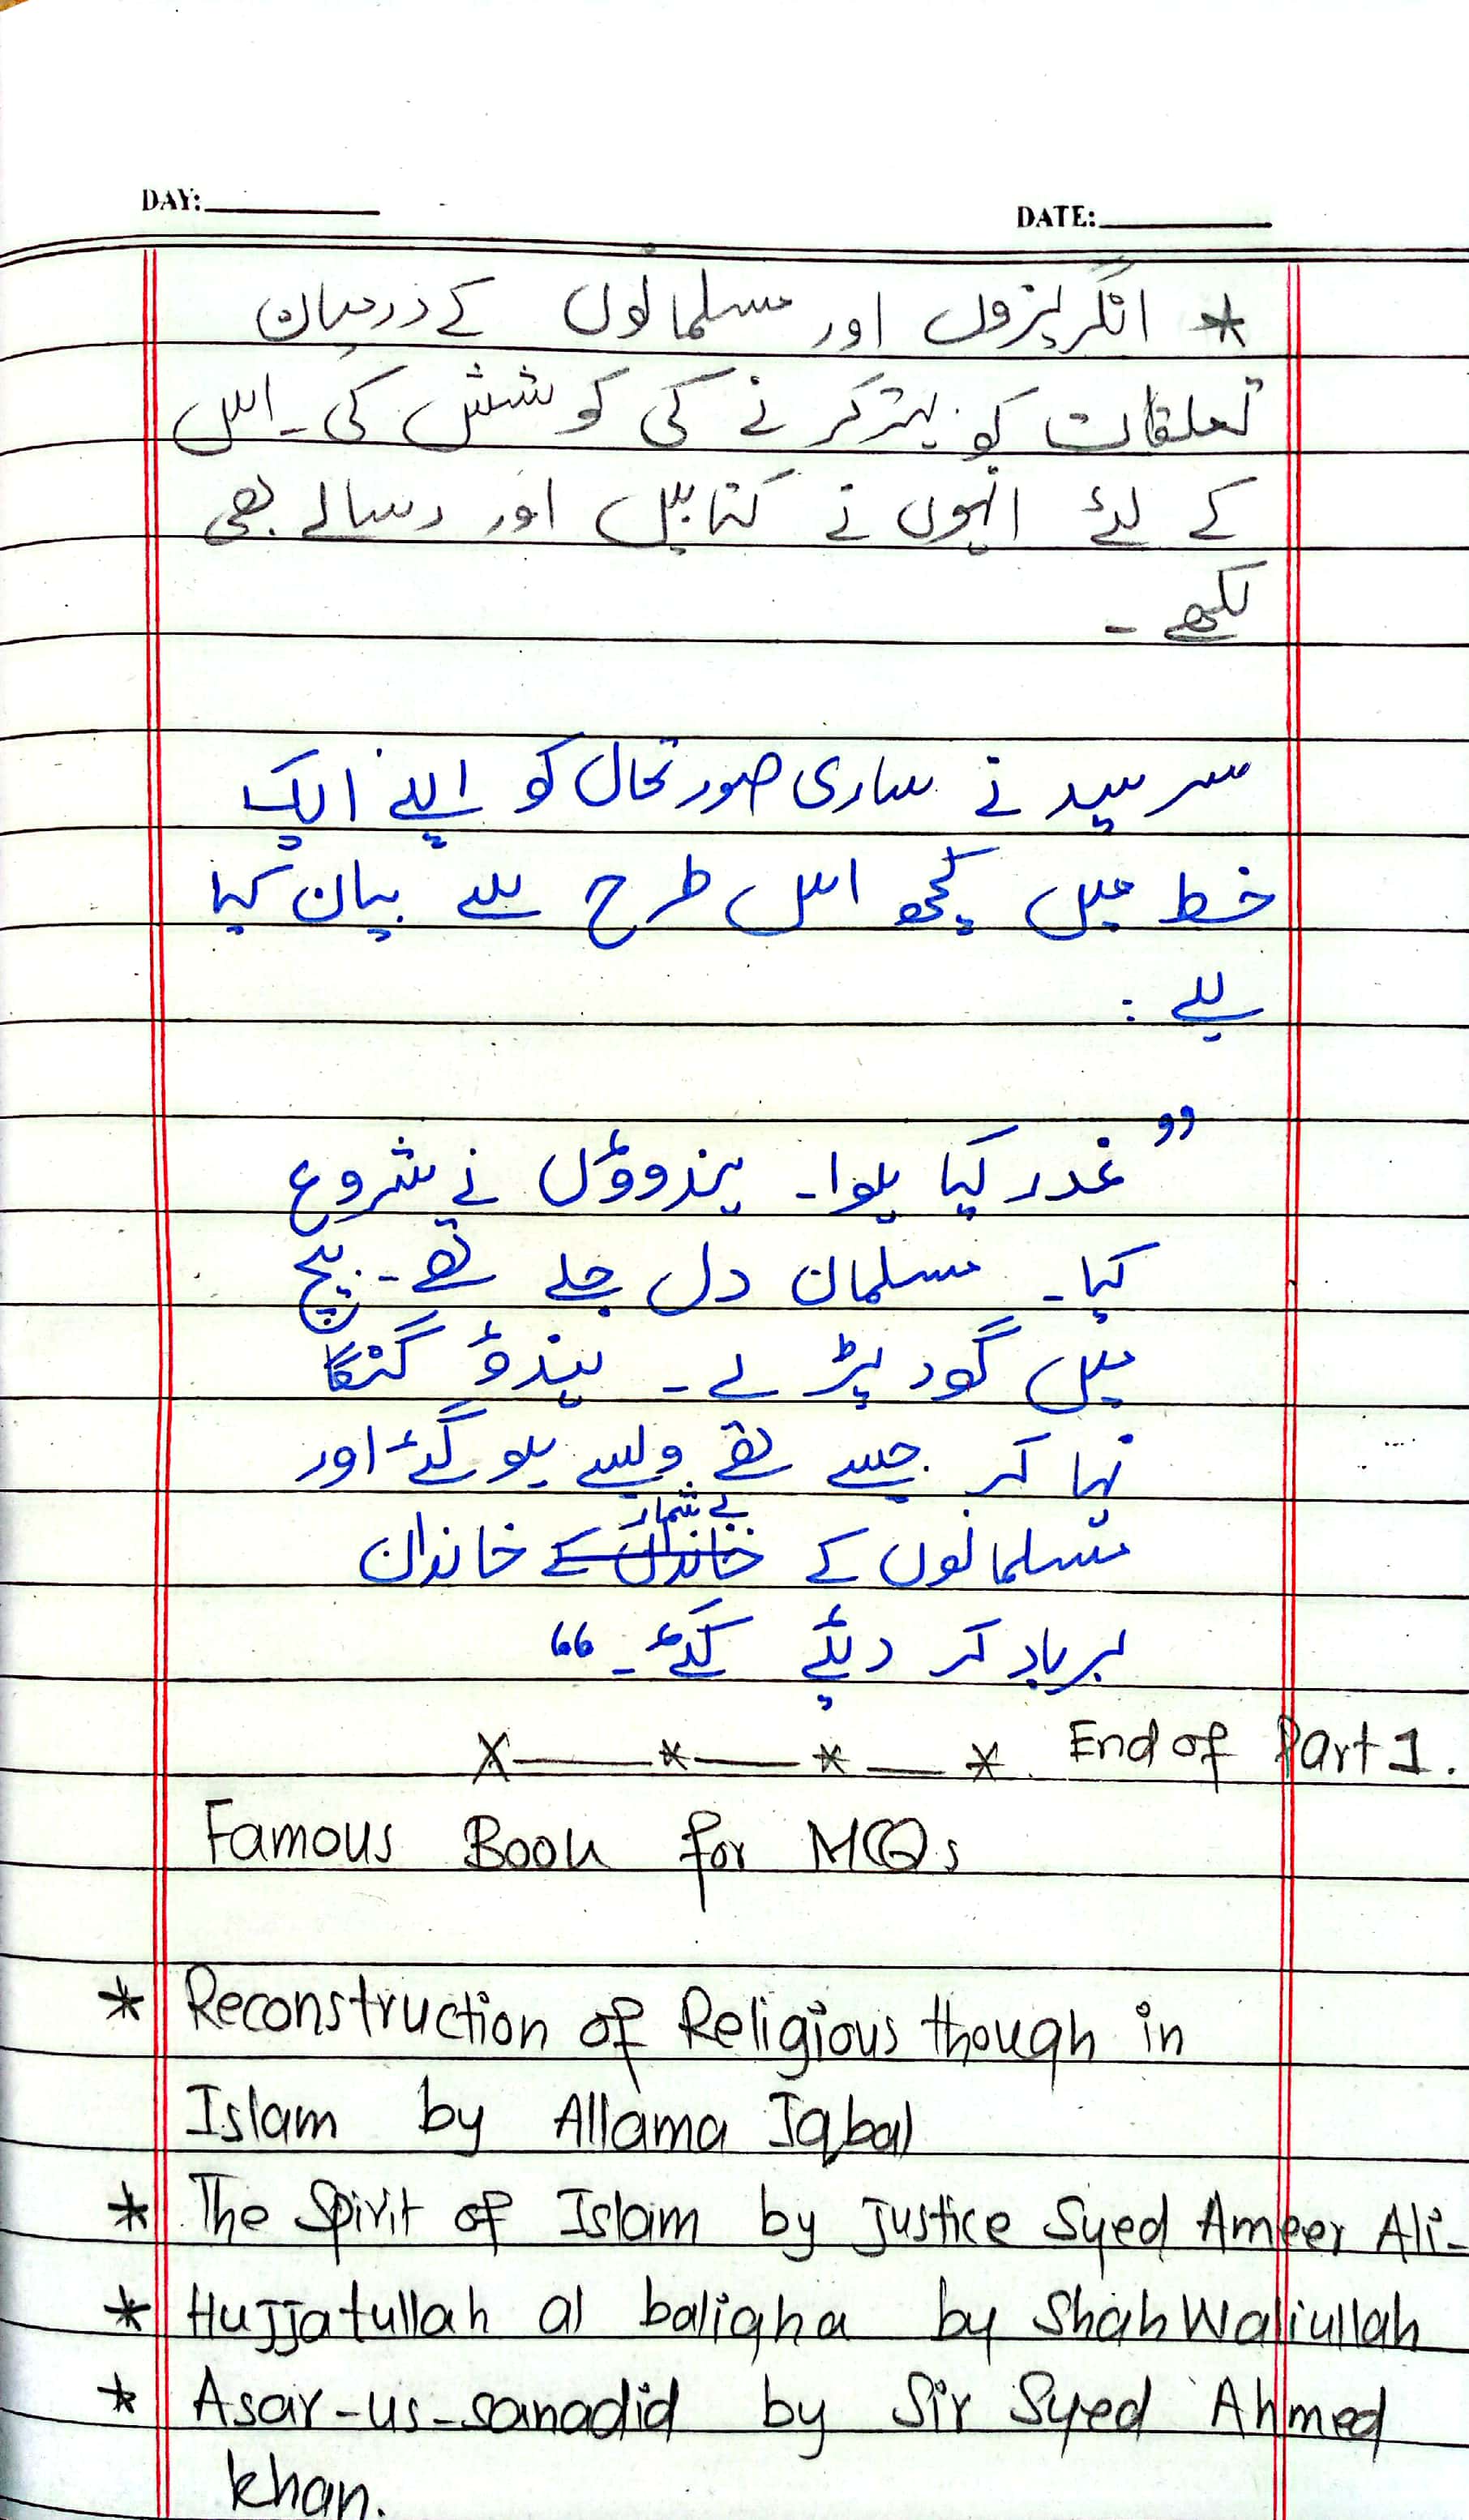 DAY:
DATE:
* انگریزوں اور مسلمانوں کے درمیان
تعلقات کو بہتر کرنے کی کوشش کی۔ اس
کے لئے انہوں نے کتابیں اور رسالے بھی
لکھے ۔
سرسید نے ساری صورتحال کو اپنے ایک
خط میں کچھ اس طرح سے بیان کیا
ہے :
” غدر کیا ہوا۔ ہندوؤں نے شروع
کیا۔ مسلمان دل جلے تھے۔ بیچ
میں گود پڑے۔ ہندؤ گنگا
نہا کر جیسے تھے ویسے ہو گئے اور
بے شمار
مسلمانوں کے خاندان کے خاندان
برباد کر دیئے گئے۔ “
X——*——*—* End of Part 1.
Famous Book for MCQs
* Reconstruction of Religious though in
Islam by Allama Iqbal
* The Spirit of Islam by Justice Syed Ameer Ali-
* Hujjatullah al baligha by Shah Waliullah
* Asar-us-sanadid by Sir Syed Ahmed
khan.